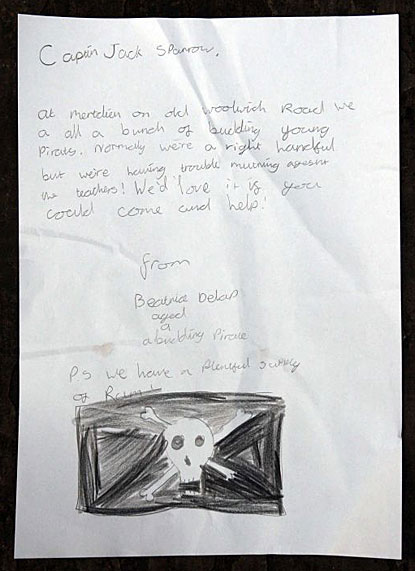 Captin Jack Sparrow,
At meredien on old woolwich Road we
a all a bunch of budding young
Pirats. Normally we're a right handful
but we're having trouble
the teachers! We'd love it if you
could come and help!
from
Beatrice Delap
aged 9
a budding Pirate
P.S we have a Plentiful
of